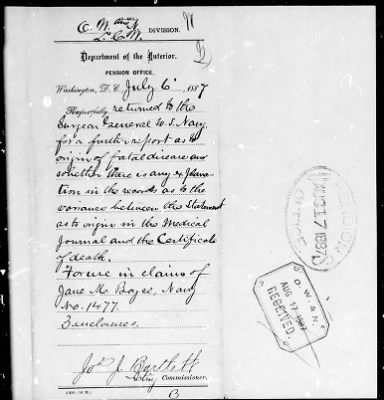 O. W. and N. DIVISION.
Department of the Interior.
PENSION OFFICE,
Washington, D. C., July 6, 1887
Respectfully returned to the
Surgeon General U.S. Navy,
for a further report as to
origin of fatal disease and
whether there is any explana-
tion in the records as to the
variance between the statement
as to origin in the Medical
Journal and the Certificate
of death.
For use in claim of
Jane M. Boyce, Navy
No. 1477.
3 enclosures.
Jos. J. Bartlett
Acting Commissioner.
B
PENSION
AUG 17 1887
OFFICE
O. W. & N.
AUG 17 1887
RECEIVED